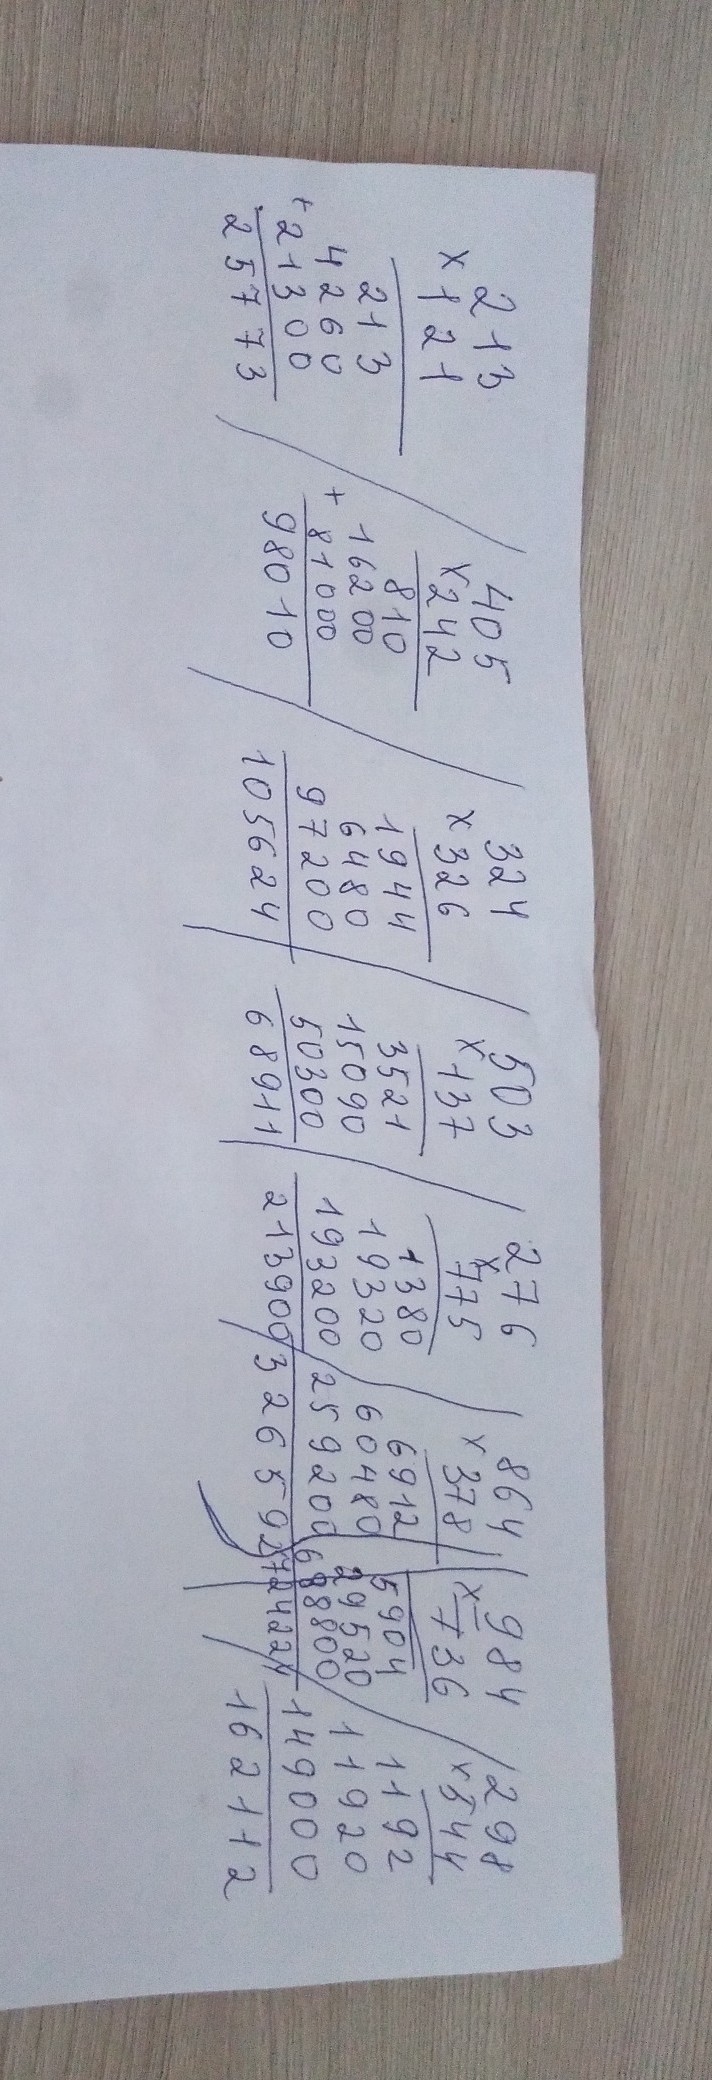 213
x 121
213
4260
+ 21300
25773
405
x 242
810
16200
+ 81000
98010
324
x 326
1944
6480
97200
105624
503
x 137
3521
15090
50300
68911
276
x 775
1380
19320
193200
213900
864
x 378
6912
60480
259200
326592
984
x 736
5904
29520
688800
724224
298
x 544
1192
11920
149000
162112